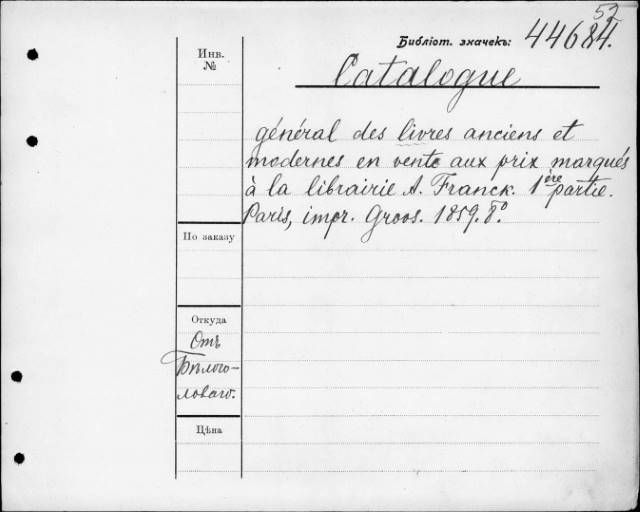 52
Библіот. значекъ: 44684.
Инв. №
Catalogue
général des livres anciens et
modernes en vente aux prix marqués
à la librairie A. Franck. 1ère partie.
Paris, impr. Groos. 1859. 8º.
По заказу
Откуда
Отъ
Бѣлого-
ловаго.
Цѣна